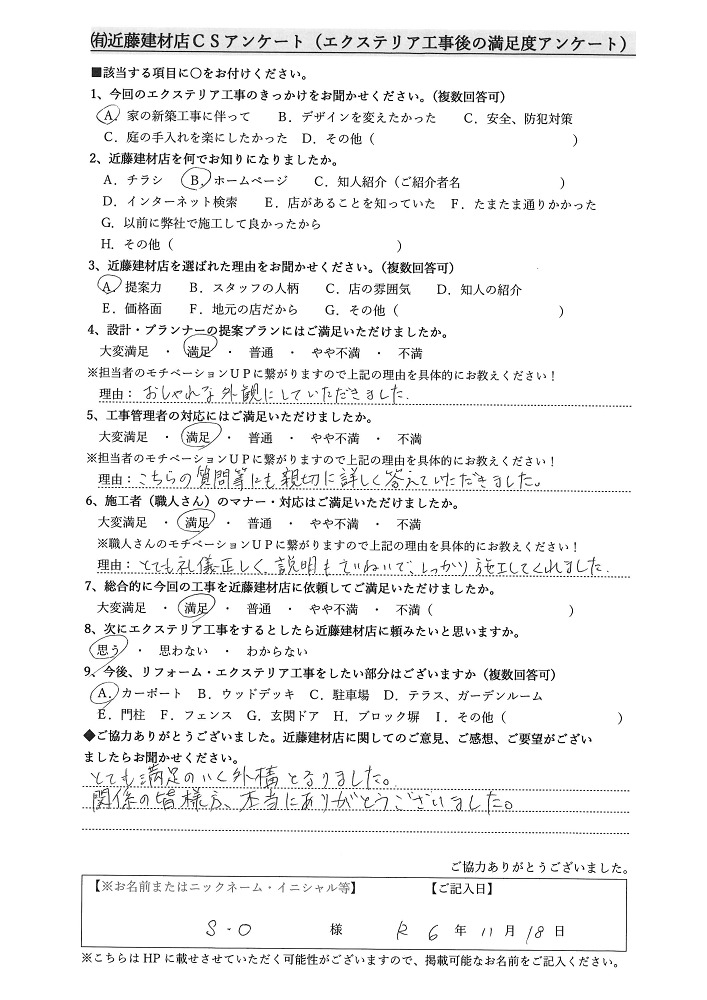 ㈲近藤建材店ＣＳアンケート（エクステリア工事後の満足度アンケート）
■該当する項目に〇をお付けください。
1、今回のエクステリア工事のきっかけをお聞かせください。（複数回答可）
A．家の新築工事に伴って　B．デザインを変えたかった　C．安全、防犯対策
C．庭の手入れを楽にしたかった　D．その他（　）
2、近藤建材店を何でお知りになりましたか。
A．チラシ　B．ホームページ　C．知人紹介（ご紹介者名　）
D．インターネット検索　E．店があることを知っていた　F．たまたま通りかかった
G．以前に弊社で施工して良かったから
H．その他（　）
3、近藤建材店を選ばれた理由をお聞かせください。（複数回答可）
A．提案力　B．スタッフの人柄　C．店の雰囲気　D．知人の紹介
E．価格面　F．地元の店だから　G．その他（　）
4、設計・プランナーの提案プランにはご満足いただけましたか。
大変満足　・　満足　・　普通　・　やや不満　・　不満
※担当者のモチベーションＵＰに繋がりますので上記の理由を具体的にお教えください！
理由：おしゃれな外観にしていただきました.
5、工事管理者の対応にはご満足いただけましたか。
大変満足　・　満足　・　普通　・　やや不満　・　不満
※担当者のモチベーションＵＰに繋がりますので上記の理由を具体的にお教えください！
理由：こちらの質問等にも親切に詳しく答えていただきました。
6、施工者（職人さん）のマナー・対応はご満足いただけましたか。
大変満足　・　満足　・　普通　・　やや不満　・　不満
※職人さんのモチベーションＵＰに繋がりますので上記の理由を具体的にお教えください！
理由：とても礼儀正しく、説明もていねいで、しっかり施工してくれました.
7、総合的に今回の工事を近藤建材店に依頼してご満足いただけましたか。
大変満足　・　満足　・　普通　・　やや不満　・　不満（　）
8、次にエクステリア工事をするとしたら近藤建材店に頼みたいと思いますか。
思う　・　思わない　・　わからない
9、今後、リフォーム・エクステリア工事をしたい部分はございますか（複数回答可）
A．カーポート　B．ウッドデッキ　C．駐車場　D．テラス、ガーデンルーム
E．門柱　F．フェンス　G．玄関ドア　H．ブロック塀　I．その他（　）
◆ご協力ありがとうございました。近藤建材店に関してのご意見、ご感想、ご要望がござい
ましたらお聞かせください。
とても満足のいく外構となりました。
関係の皆様方、本当にありがとうございました。
ご協力ありがとうございました。
【※お名前またはニックネーム・イニシャル等】　【ご記入日】
S・O　様　R 6 年 11 月 18 日
※こちらは HP に載せさせていただく可能性がございますので、掲載可能なお名前をご記入ください。